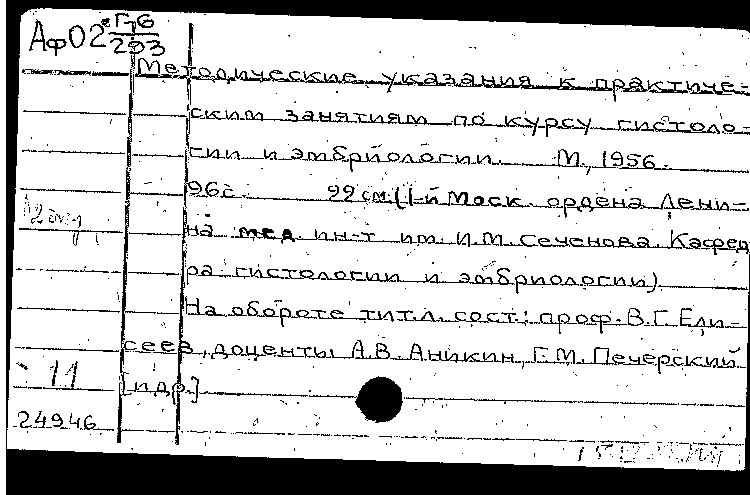 Аф02 Г-6
293
Методические указания к практиче-
ским занятиям по курсу гистоло-
гии и эмбриологии. М., 1956.
96с. 22 см (1-й Моск. ордена Лени-
на мед. ин-т им. И.М. Сеченова. Кафед
ра гистологии и эмбриологии)
На обороте тит.л. сост.: проф. В.Г. Ели-
сеев, доценты А.В. Аникин, Г.М. Печерский
[и др.]
11
24946